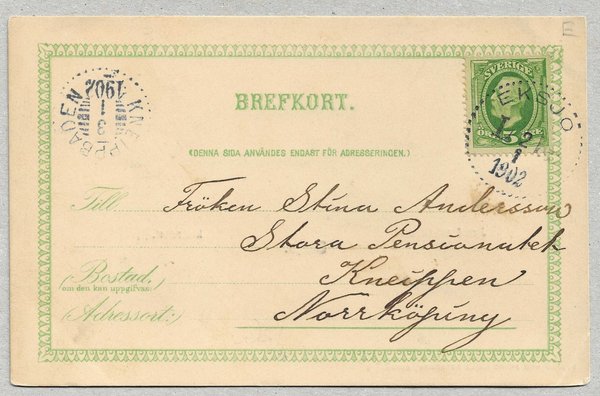 BREFKORT.
(DENNA SIDA ANVÄNDES ENDAST FÖR ADRESSERINGEN.)
SVERIGE
5
ÖRE
EKSJÖ
2
1
1902
KNEIPPBADEN
3 1
1902
Till Fröken Stina Andersson
Stora Pensionatet
(Bostad, Kneippen
om den kan uppgifvas.)
(Adressort:) Norrköping